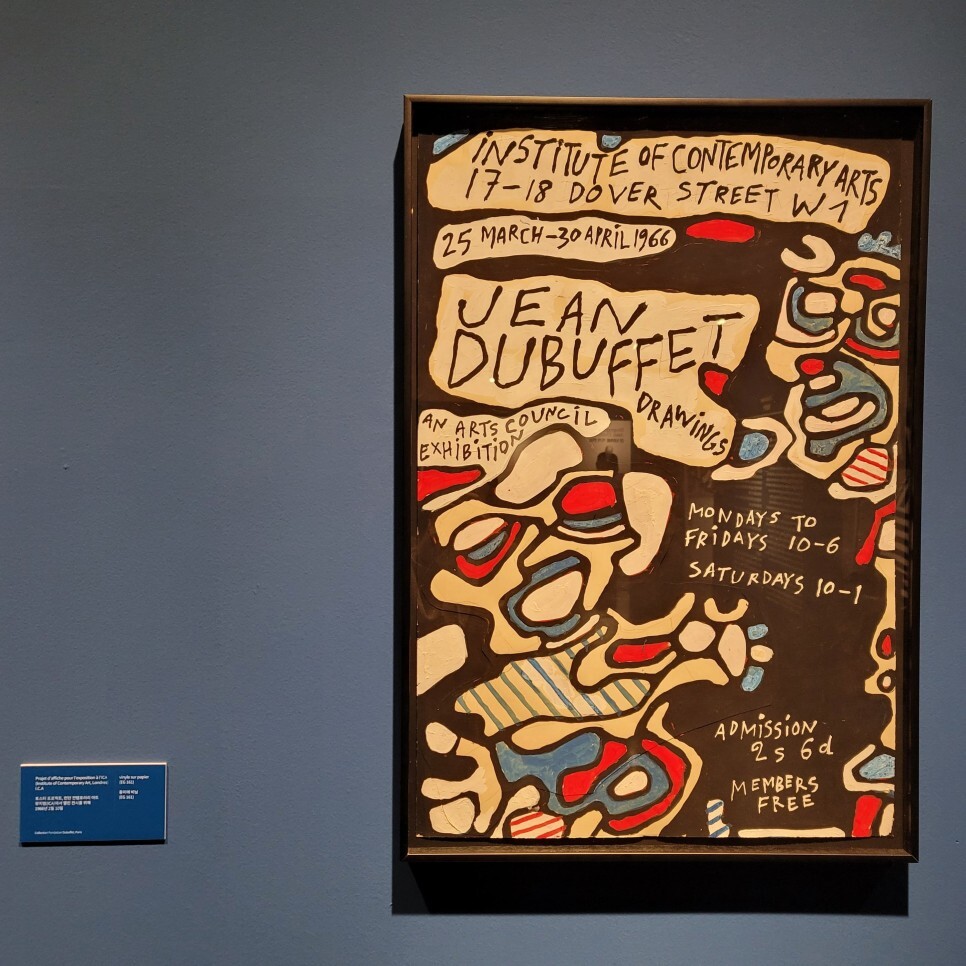 INSTITUTE OF CONTEMPORARY ARTS
17-18 DOVER STREET W1
25 MARCH-30 APRIL 1966
JEAN
DUBUFFET
DRAWINGS
AN ARTS COUNCIL
EXHIBITION
MONDAYS TO
FRIDAYS 10-6
SATURDAYS 10-1
ADMISSION
2s 6d
MEMBERS
FREE
Projet d'affiche pour l'exposition à l'ICA
(Institute of Contemporary Art, Londres)
vinyle sur papier